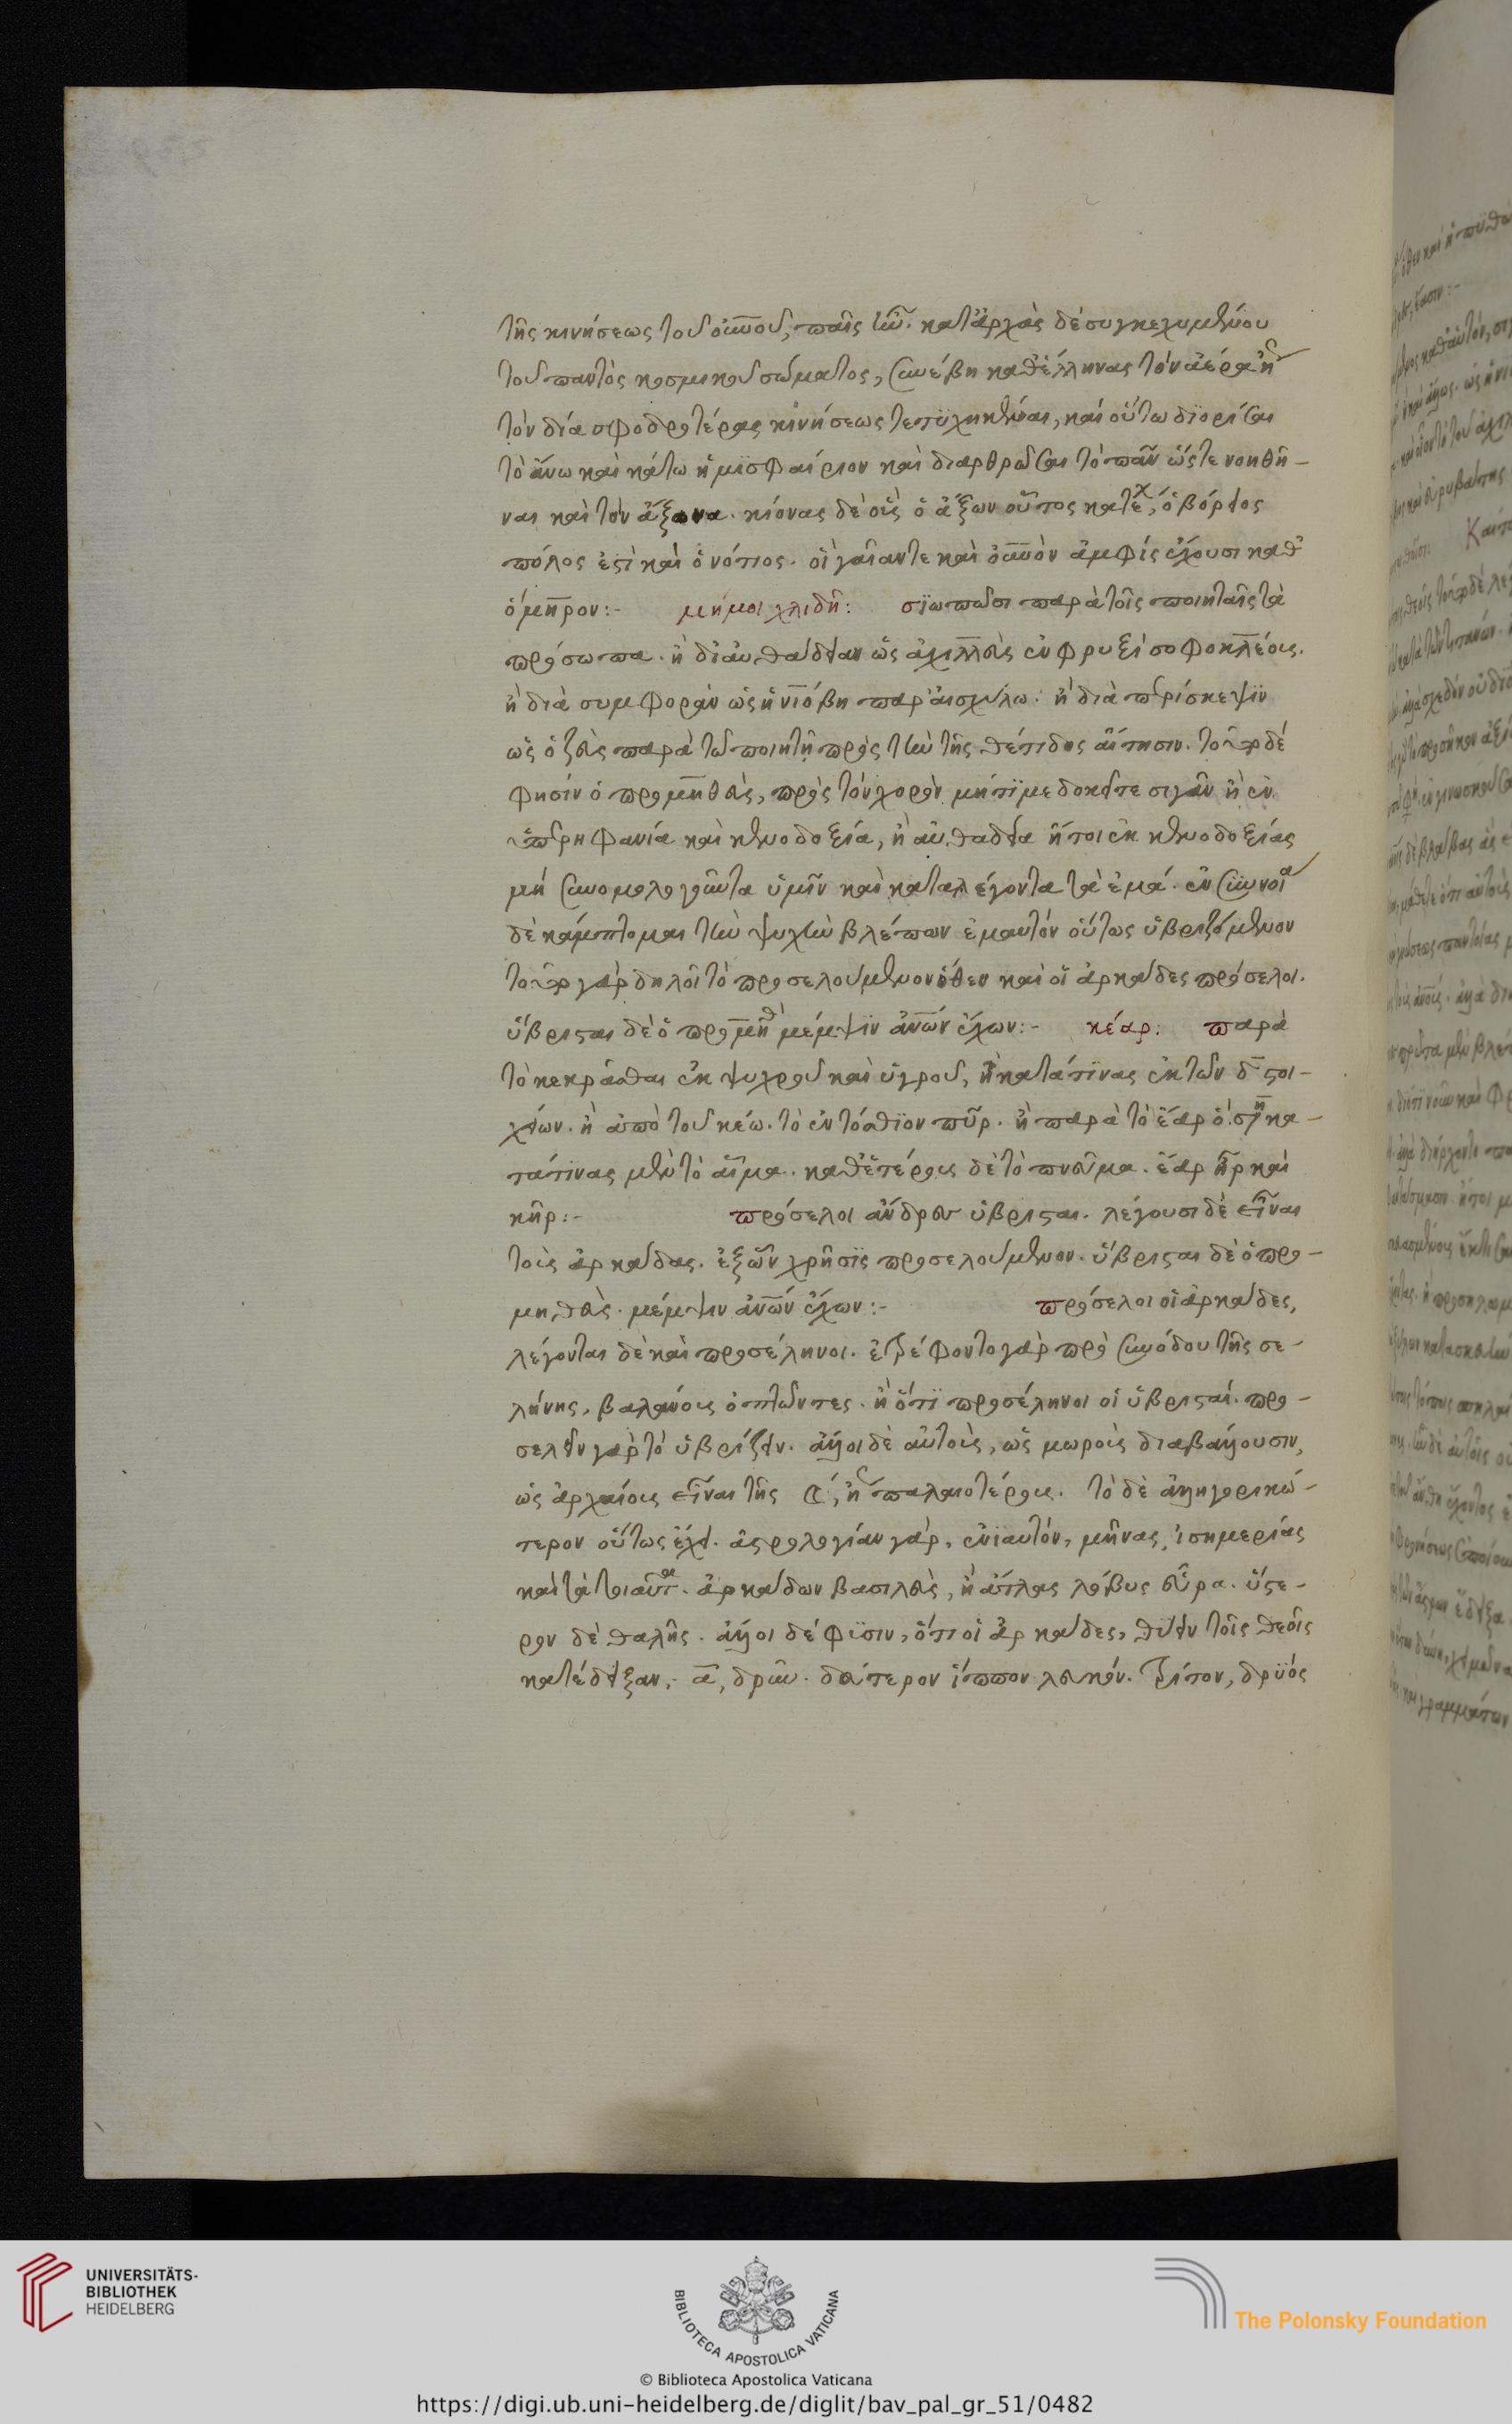 τῆς κινήσεως τοῦ οὐνοῦ, παῖς ἦν. κατἀρχὰς δὲ συγκεχυμένου
τοῦ παντὸς κοσμικοῦ σώματος, συνέβη καθἕλληνας τὸν ἀέρα
τὸν διὰ σφοδροτέρας κινήσεως λεπτυχυκέναι, καὶ οὕτω διορίσαι
τὸ ἄνω καὶ κάτω ἡμισφαίριον καὶ διαρθρῶσαι τὸ πᾶν ὥστε νοηθῆ-
ναι καὶ τὸν ἄξονα. κίονας δὲ οἷς ὁ ἄξων οὗτος κατέχ, ὁ βόρειος
πόλος ἐστὶ καὶ ὁ νότιος. οἳ γαῖαντε καὶ οὐνὸν ἀμφὶς ἔχουσι καθ
ὅμηρον:- μή μοι χλιδῇ: σιωπῶσι παρὰ τοῖς ποιηταῖς τὰ
πρόσωπα. ἢ διαὐθάδειαν ὡς ἀχιλλεὺς ἐν φρυξὶ σοφοκλέους.
ἢ διὰ συμφορὰν ὡς ἡ νιόβη παραἰσχύλω. ἢ διὰ περίσκεψιν
ὡς ὁ ζεὺς παρὰ τῶ ποιητῇ πρὸς τὴν τῆς θέτιδος αἴτησιν. τοῦτο δέ
φησίν ὁ προμηθεὺς, πρὸς τὸν χορὸν μήτι με δοκεῖτε σιγᾶν ἢ ἐν
ὑπερηφανία καὶ κενοδοξία, ἢ αὐθαδεία ἤτοι ἐκ κενοδοξίας
μὴ συνομολογοῦντα ὑμῖν καὶ καταλέγοντα τὰ ἐμά. ἐν συννοία
δὲ κάμπτομαι τὴν ψυχὴν βλέπων ἐμαυτόν οὕτως ὑβριζόμενον
τοῦτο γὰρ δηλοῖ τὸ προσελούμενον ὅθεν καὶ οἱ ἀρκάδες πρόσελοι.
ὕβρισται δὲ ὁ προμηθ μέμψιν ἀνων ἔχων:- κέαρ: παρὰ
τὸ κεκρᾶσθαι ἐκ ψυχροῦ καὶ ὑγροῦ, ἢ κατάτινας ἐκ τῶν δ στοι-
χείων. ἢ ἀπὸ τοῦ κέω. τὸ ἐντόσθιον πῦρ. ἢ παρὰ τὸ ἔαρ ὁ. ση κα-
τάτινας μὲν τὸ αἷμα. καθἑτέρους δὲ τὸ πνεῦμα. ἔαρ ἦρ καὶ
κῆρ:- πρόσελοι ἄνδρες ὑβρισταί. λέγουσι δὲ εἶναι
τοὺς ἀρκάδας. ἐξὧν χρῆσις προσελούμενον. ὕβρισται δὲ ὁ προ-
μηθεὺς. μέμψιν ἀνων ἔχων:- πρόσελοι οἱ ἀρκάδες,
λέγονται δὲ καὶ προσέληνοι. ἐτρέφοντο γὰρ πρὸ συνόδου τῆς σε-
λήνης, βαλάνους ὀπτῶντες. ἢ ὅτι προσέληνοι οἱ ὑβρισταί. προ-
σελεῖν γὰρ τὸ ὑβρίζειν. ἄλλοι δὲ αὐτοὺς, ὡς μωροὺς διαβάλλουσιν,
ὡς ἀρχαίους εἶναι τῆς ☾, ἢ παλαιοτέρους. τὸ δὲ ἀλληγορικώ-
τερον οὕτως ἔχει. ἀστρολογίαν γὰρ, ἐνιαυτόν, μῆνας, ἰσημερίας
καὶ τὰ τοιαῦτα. ἀρκάδων βασιλεὺς, ἢ ἄτλας λίβυς εὗρα. ὕστε-
ρον δὲ θαλῆς. ἄλλοι δέ φασιν, ὅτι οἱ ἀρκάδες, θύειν τοῖς θεοῖς
κατέδειξαν, α, δρῦν. δεύτερον ἵππον λευκόν. τρίτον, δρυὸς
UNIVERSITÄTS-
BIBLIOTHEK
HEIDELBERG
BIBLIOTECA APOSTOLICA VATICANA
The Polonsky Foundation
© Biblioteca Apostolica Vaticana
https://digi.ub.uni-heidelberg.de/diglit/bav_pal_gr_51/0482